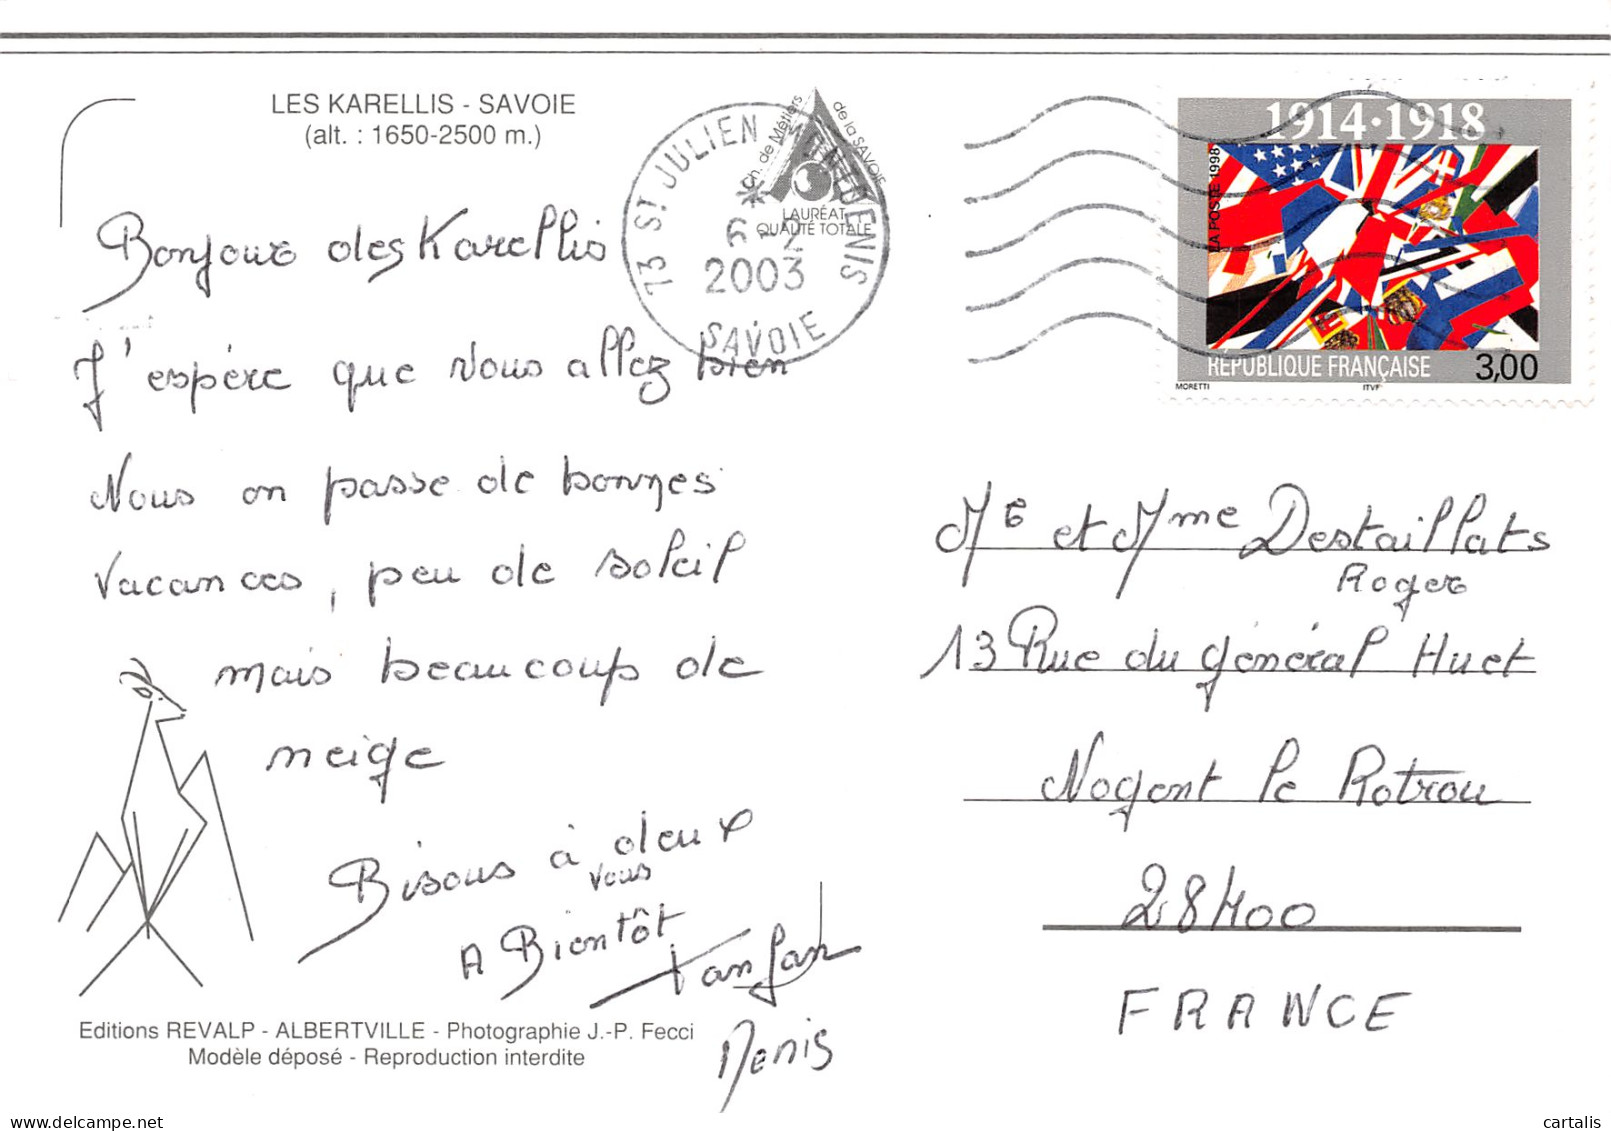 LES KARELLIS - SAVOIE
(alt. : 1650-2500 m.)
Bonjour des Karellis
J'espère que Vous allez bien
Nous on passe de bonnes
Vacances, peu de soleil
mais beaucoup de
neige
Bisous à deux
vous
A Bientôt
Denis
Editions REVALP - ALBERTVILLE - Photographie J.-P. Fecci
Modèle déposé - Reproduction interdite
73 ST JULIEN MONTDENIS
6-2
2003
SAVOIE
Ch. de Métiers
de la SAVOIE
LAURÉAT
QUALITÉ TOTALE
1914·1918
LA POSTE 1998
RÉPUBLIQUE FRANÇAISE 3,00
MORETTI ITVF
Mr et Mme Destaillats
Roger
13 Rue du général Huet
Nogent le Rotrou
28400
FRANCE
www.delcampe.net
cartalis